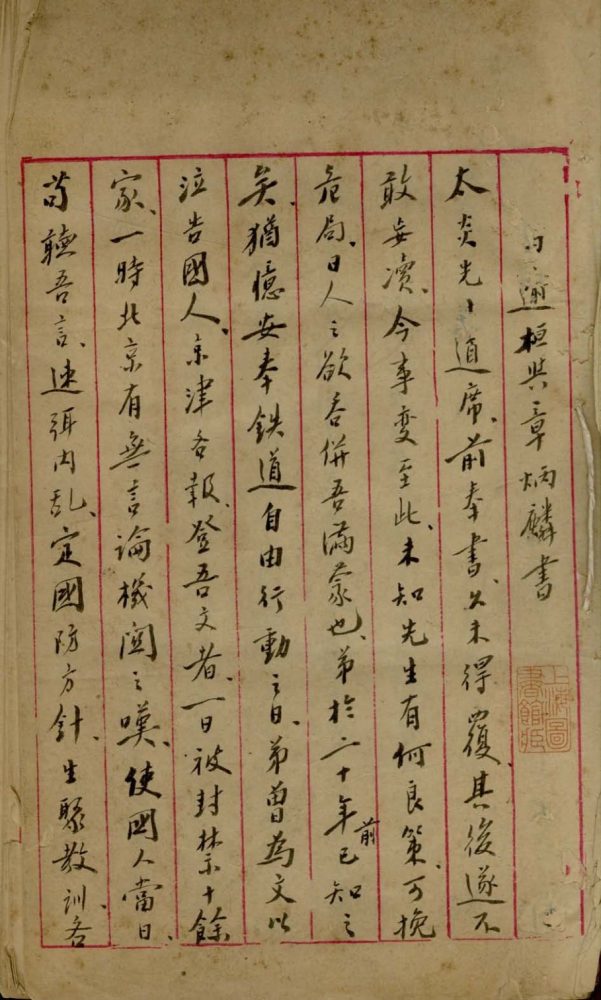 逾桓與章炳麟書
太炎先〻道席、前奉書、久未得覆、其後遂不
敢妄瀆、今事变至此、未知先生有何良策、可挽
危局、日人之欲吞併吾滿蒙也、弟於二十年前已知之
矣、猶憶安奉鉄道自由行動之日、弟曾為文以
泣告國人、京津各報、登吾文者、一日被封禁十餘
家、一時北京有無言論機関之嘆、使國人當日、
苟聽吾言、速弭内乱、定國防方針、生聚教訓、各
上海圖
書館藏